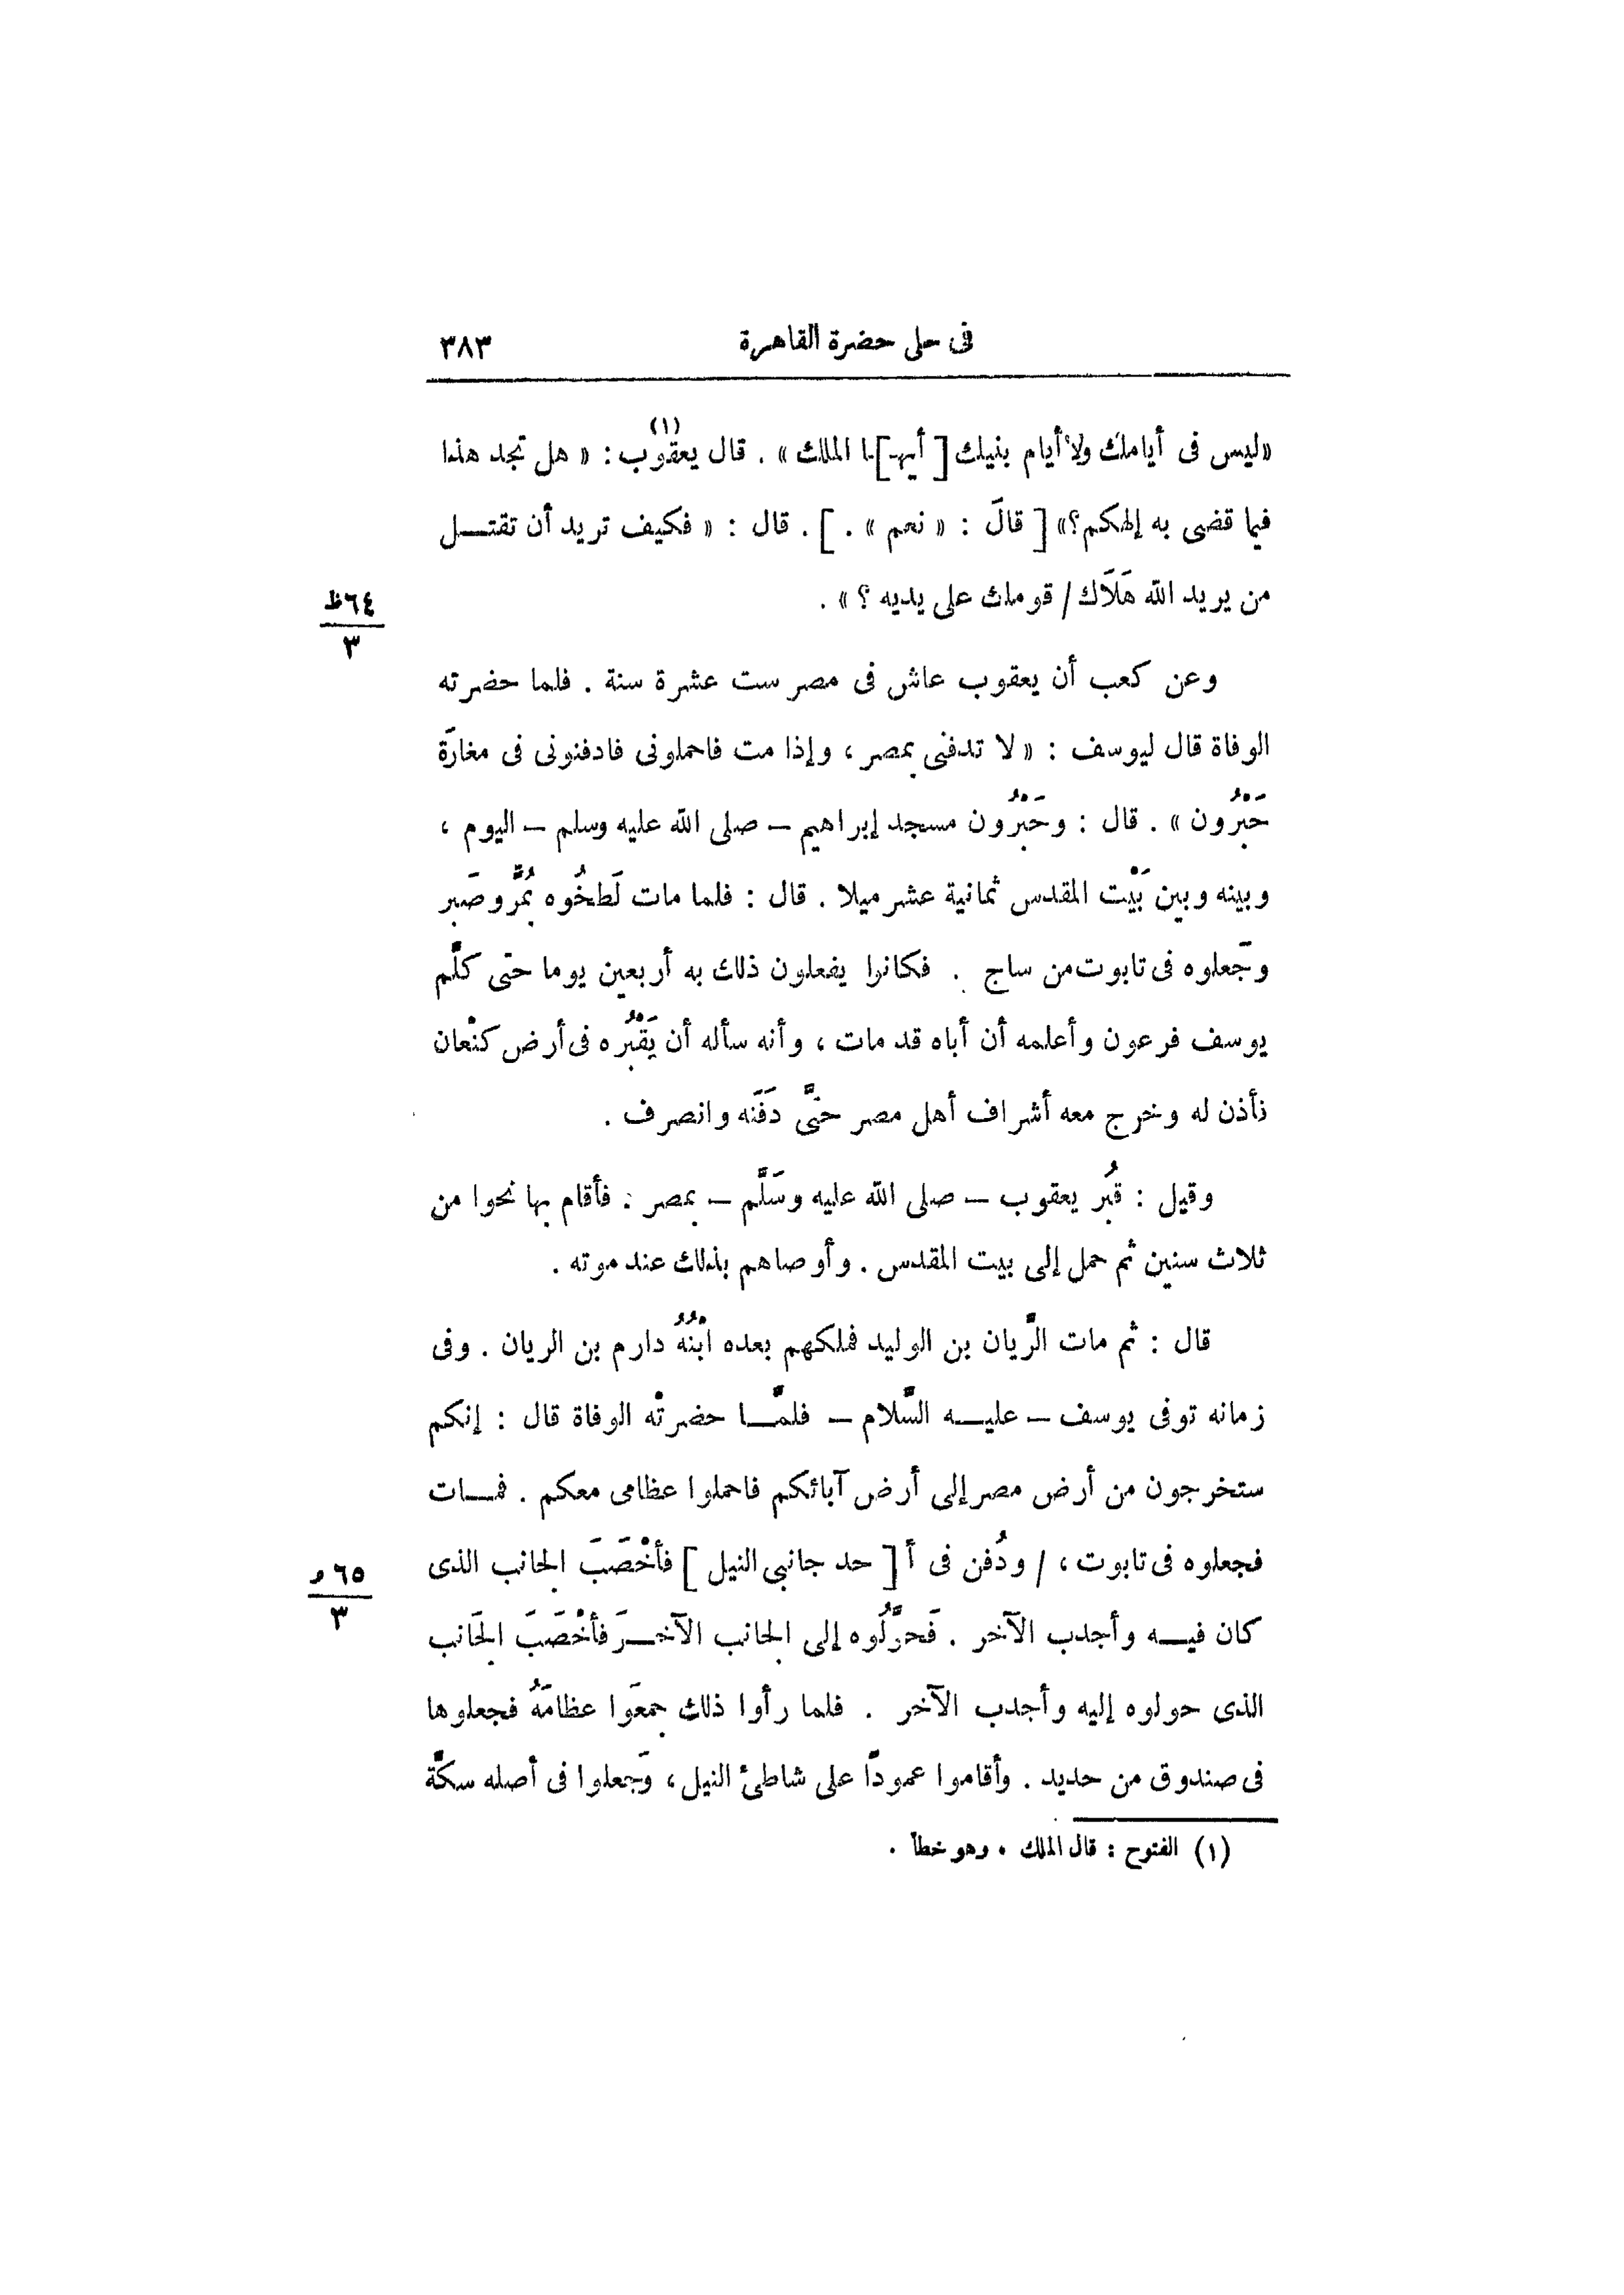 فى حلى حضرة القاهرة ٣٨٣
«ليس فى أيامك ولا أيام بنيك [ أيهـ]ـا الملك » . قال يعقوب(١) : « هل تجد هذا
فيما قضى به إلهكم؟» [ قالَ : « نعم » . ] . قال : « فكيف تريد أن تقتــل
من يريد الله هَلَاك / قومك على يديه ؟ » .
٦٤ظ
٣
وعن كعب أن يعقوب عاش فى مصر ست عشرة سنة . فلما حضرته
الوفاة قال ليوسف : « لا تدفنى بمصر ، وإذا مت فاحملونى فادفنونى فى مغارَة
حَبْرُون » . قال : وحَبْرُون مسجد إبراهيم – صلى الله عليه وسلم – اليوم ،
وبينه وبين بَيْت المقدس ثمانية عشر ميلا . قال : فلما مات لَطخُوه بمُرّ وصَبر
وجَعلوه فى تابوت من ساج . فكانوا يفعلون ذلك به أربعين يوما حتى كلَّم
يوسف فرعون وأعلمه أن أباه قد مات ، وأنه سأله أن يَقْبُره فى أرض كنْعان
فأذن له وخرج معه أشراف أهل مصر حتَّى دَفَنَه وانصرف .
وقيل : قُبر يعقوب – صلى الله عليه وسَلَّم – بمصر : فأقام بها نحوا من
ثلاث سنين ثم حمل إلى بيت المقدس . وأوصاهم بذلك عند موته .
قال : ثم مات الرَّيان بن الوليد فملكهم بعده ابْنُهُ دارم بن الريان . وفى
زمانه توفى يوسف – عليــه السَّلام – فلمَّــا حضرتْه الوفاة قال : إنكم
ستخرجون من أرض مصر إلى أرض آبائكم فاحملوا عظامى معكم . فمــات
فجعلوه فى تابوت ، / ودُفن فى أ [ حد جانبى النيل ] فأخْصَبَ الجانب الذى
٦٥ و
٣
كان فيــه وأجدب الآخر . فَحوَّلُوه إلى الجانب الآخــرَ فأخْصَبَ الجَانب
الذى حولوه إليه وأجدب الآخر . فلما رأوا ذلك جمعَوا عظامَهُ فجعلوها
فى صندوق من حديد . وأقاموا عمودًا على شاطئ النيل ، وجَعلوا فى أصله سكَّة
(١) الفتوح : قال الملك . وهو خطأ .